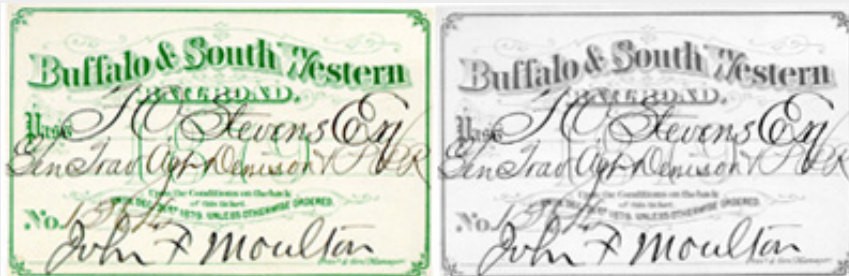 Buffalo & South Western
RAILROAD.
Pass T O Stevens Esq
Gen Trav Agt Denison & P RR
Upon the Conditions on the back
of this ticket.
UNTIL DEC. 31ST 1879. UNLESS OTHERWISE ORDERED.
No.
John F Moulton
Buffalo & South Western
RAILROAD.
Pass T O Stevens Esq
Gen Trav Agt Denison & P RR
Upon the Conditions on the back
of this ticket.
UNTIL DEC. 31ST 1879. UNLESS OTHERWISE ORDERED.
No.
John F Moulton